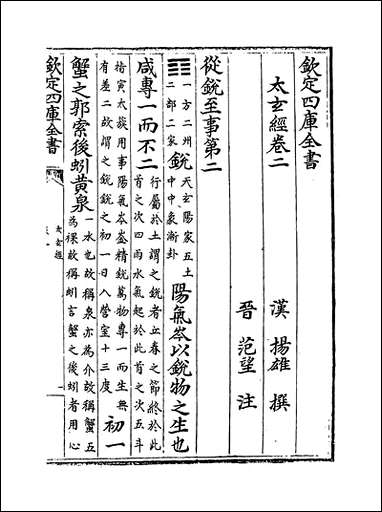 欽定四庫全書
太玄經卷二
漢 揚雄 撰
晉 范望 注
從銳至事第二
一方二州
二部二家
銳
天玄陽家五土
中中象漸卦
陽氣岑以銳物之生也
咸專一而不二
行屬於土謂之銳者立春之節終於此
首之次四雨水氣起於此首之次五斗
指寅太簇用事陽氣岑崟精銳萬物專一而生無
有差二故謂之銳銳之初一日入營室十三度
初一
蟹之郭索後蚓黃泉
一水也故稱泉亦為介故稱蟹五
為裸故稱蚓言蟹之後蚓者用心
欽定四庫全書
太玄經
一